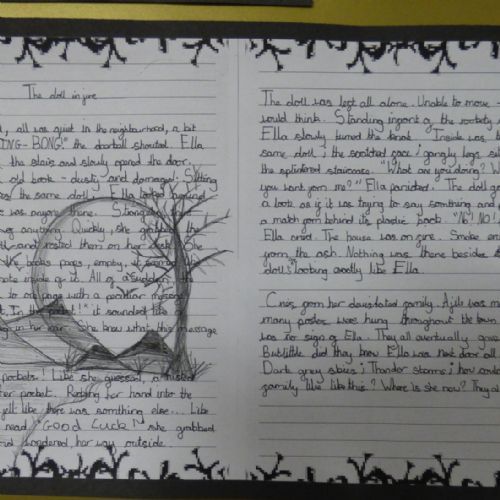 The doll in fire
, all was quiet in the neighbourhood, a bit
DONG- BONG!" the doorbell shouted. Ella
the stairs and slowly opened the door.
old book - dusty and damaged. Sitting
the same doll. Ella looked around
was anyone there.
anything. Quickly, she grabbed the
and rested them on her desk. She
books page, empty, it seemed
inside of it. All of a sudden, the
to one page with a peculiar message
In the it sounded like a
in her ear. She knew what this message
pockets! Like she guessed, a
her pocket. Rubbing her hand into the
felt like there was somthing else... Like
read, "Good Luck!" she grabbed
and wondered her way outside.
The doll was left all alone. Unable to move
would think. Standing infront of the
Ella slowly turned the knob. Inside was
same doll; the face; gangly legs
the splintered staircase. "What are you doing? W
you want from me?" Ella panicked. The doll g
a look as if it was trying to say somthing and
a match from behind its plastic back. "No! NO!
Ella cried. The house was on fire. Smoke em
from the ash. Nothing was there besides
dolls looking exactly like Ella.
Cries from her devastated family. A
many posters was hung throughout the town
was no sign of Ella. They all eventually gave
But little did they know Ella was next door all
Dark grey skies; Thunder storms; how could
family like like this? Where is she now? They